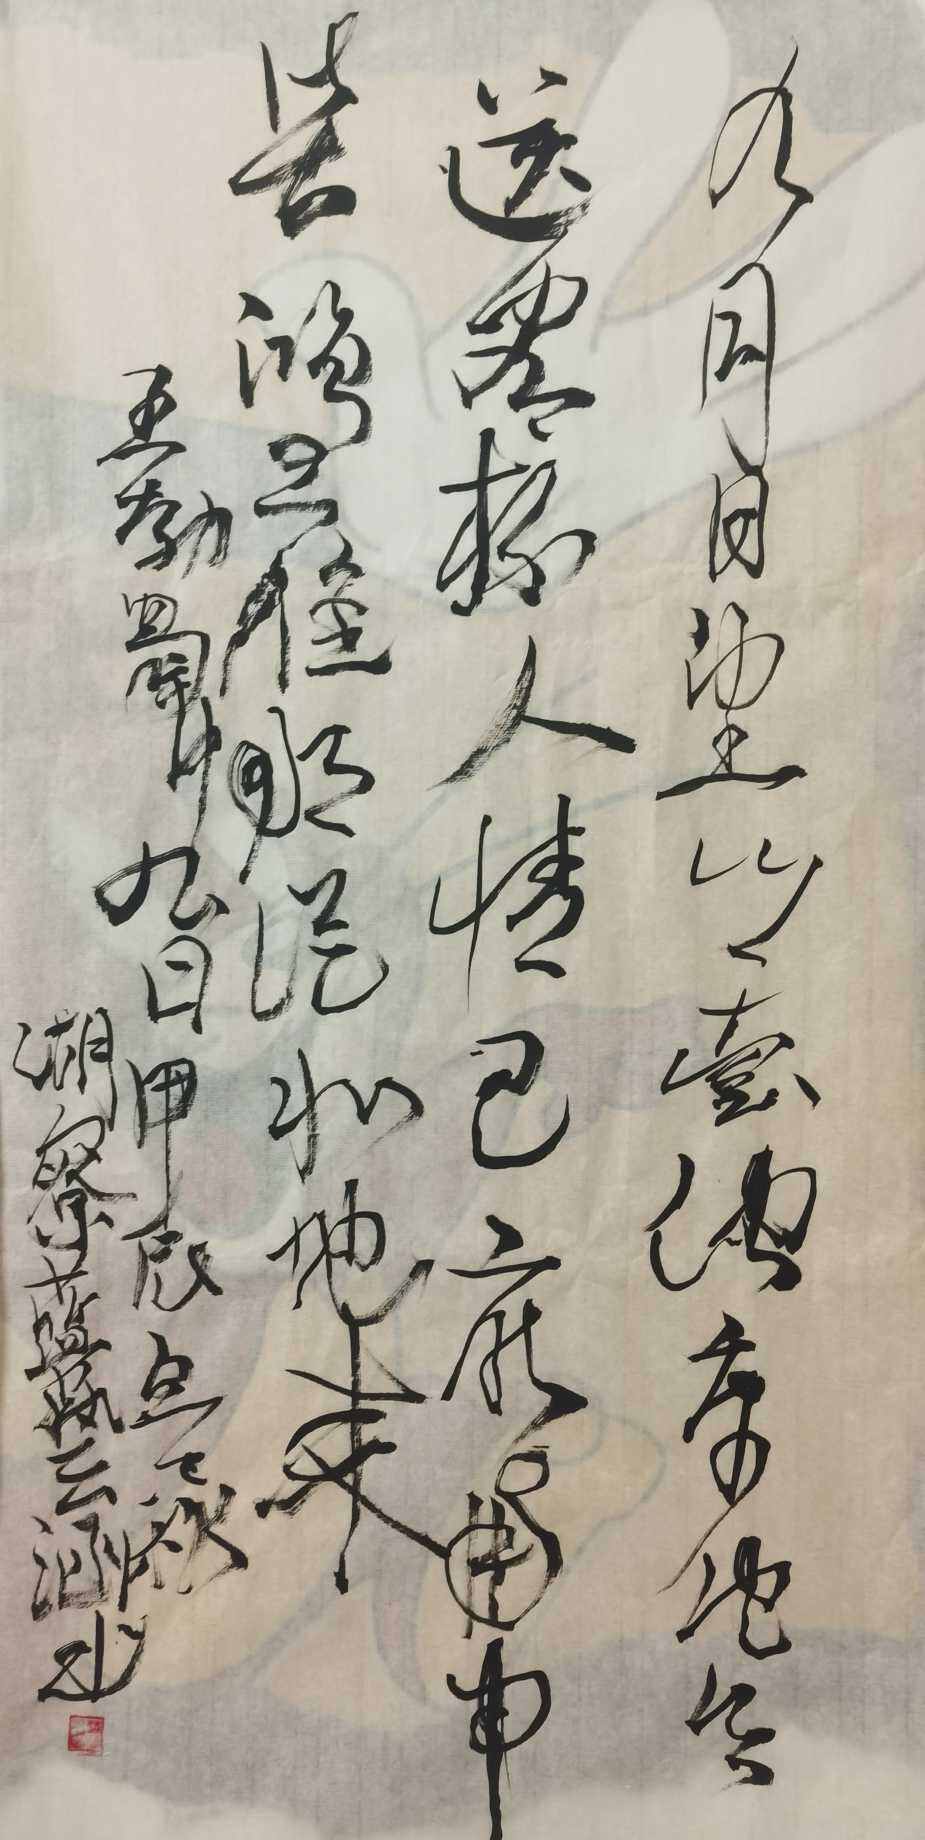 九月日望乡臺他席他乡
送客杯人情已厌南中
苦鸿雁那從北地来
王勃蜀中九日甲辰立秋
湖寮蓝云涵书